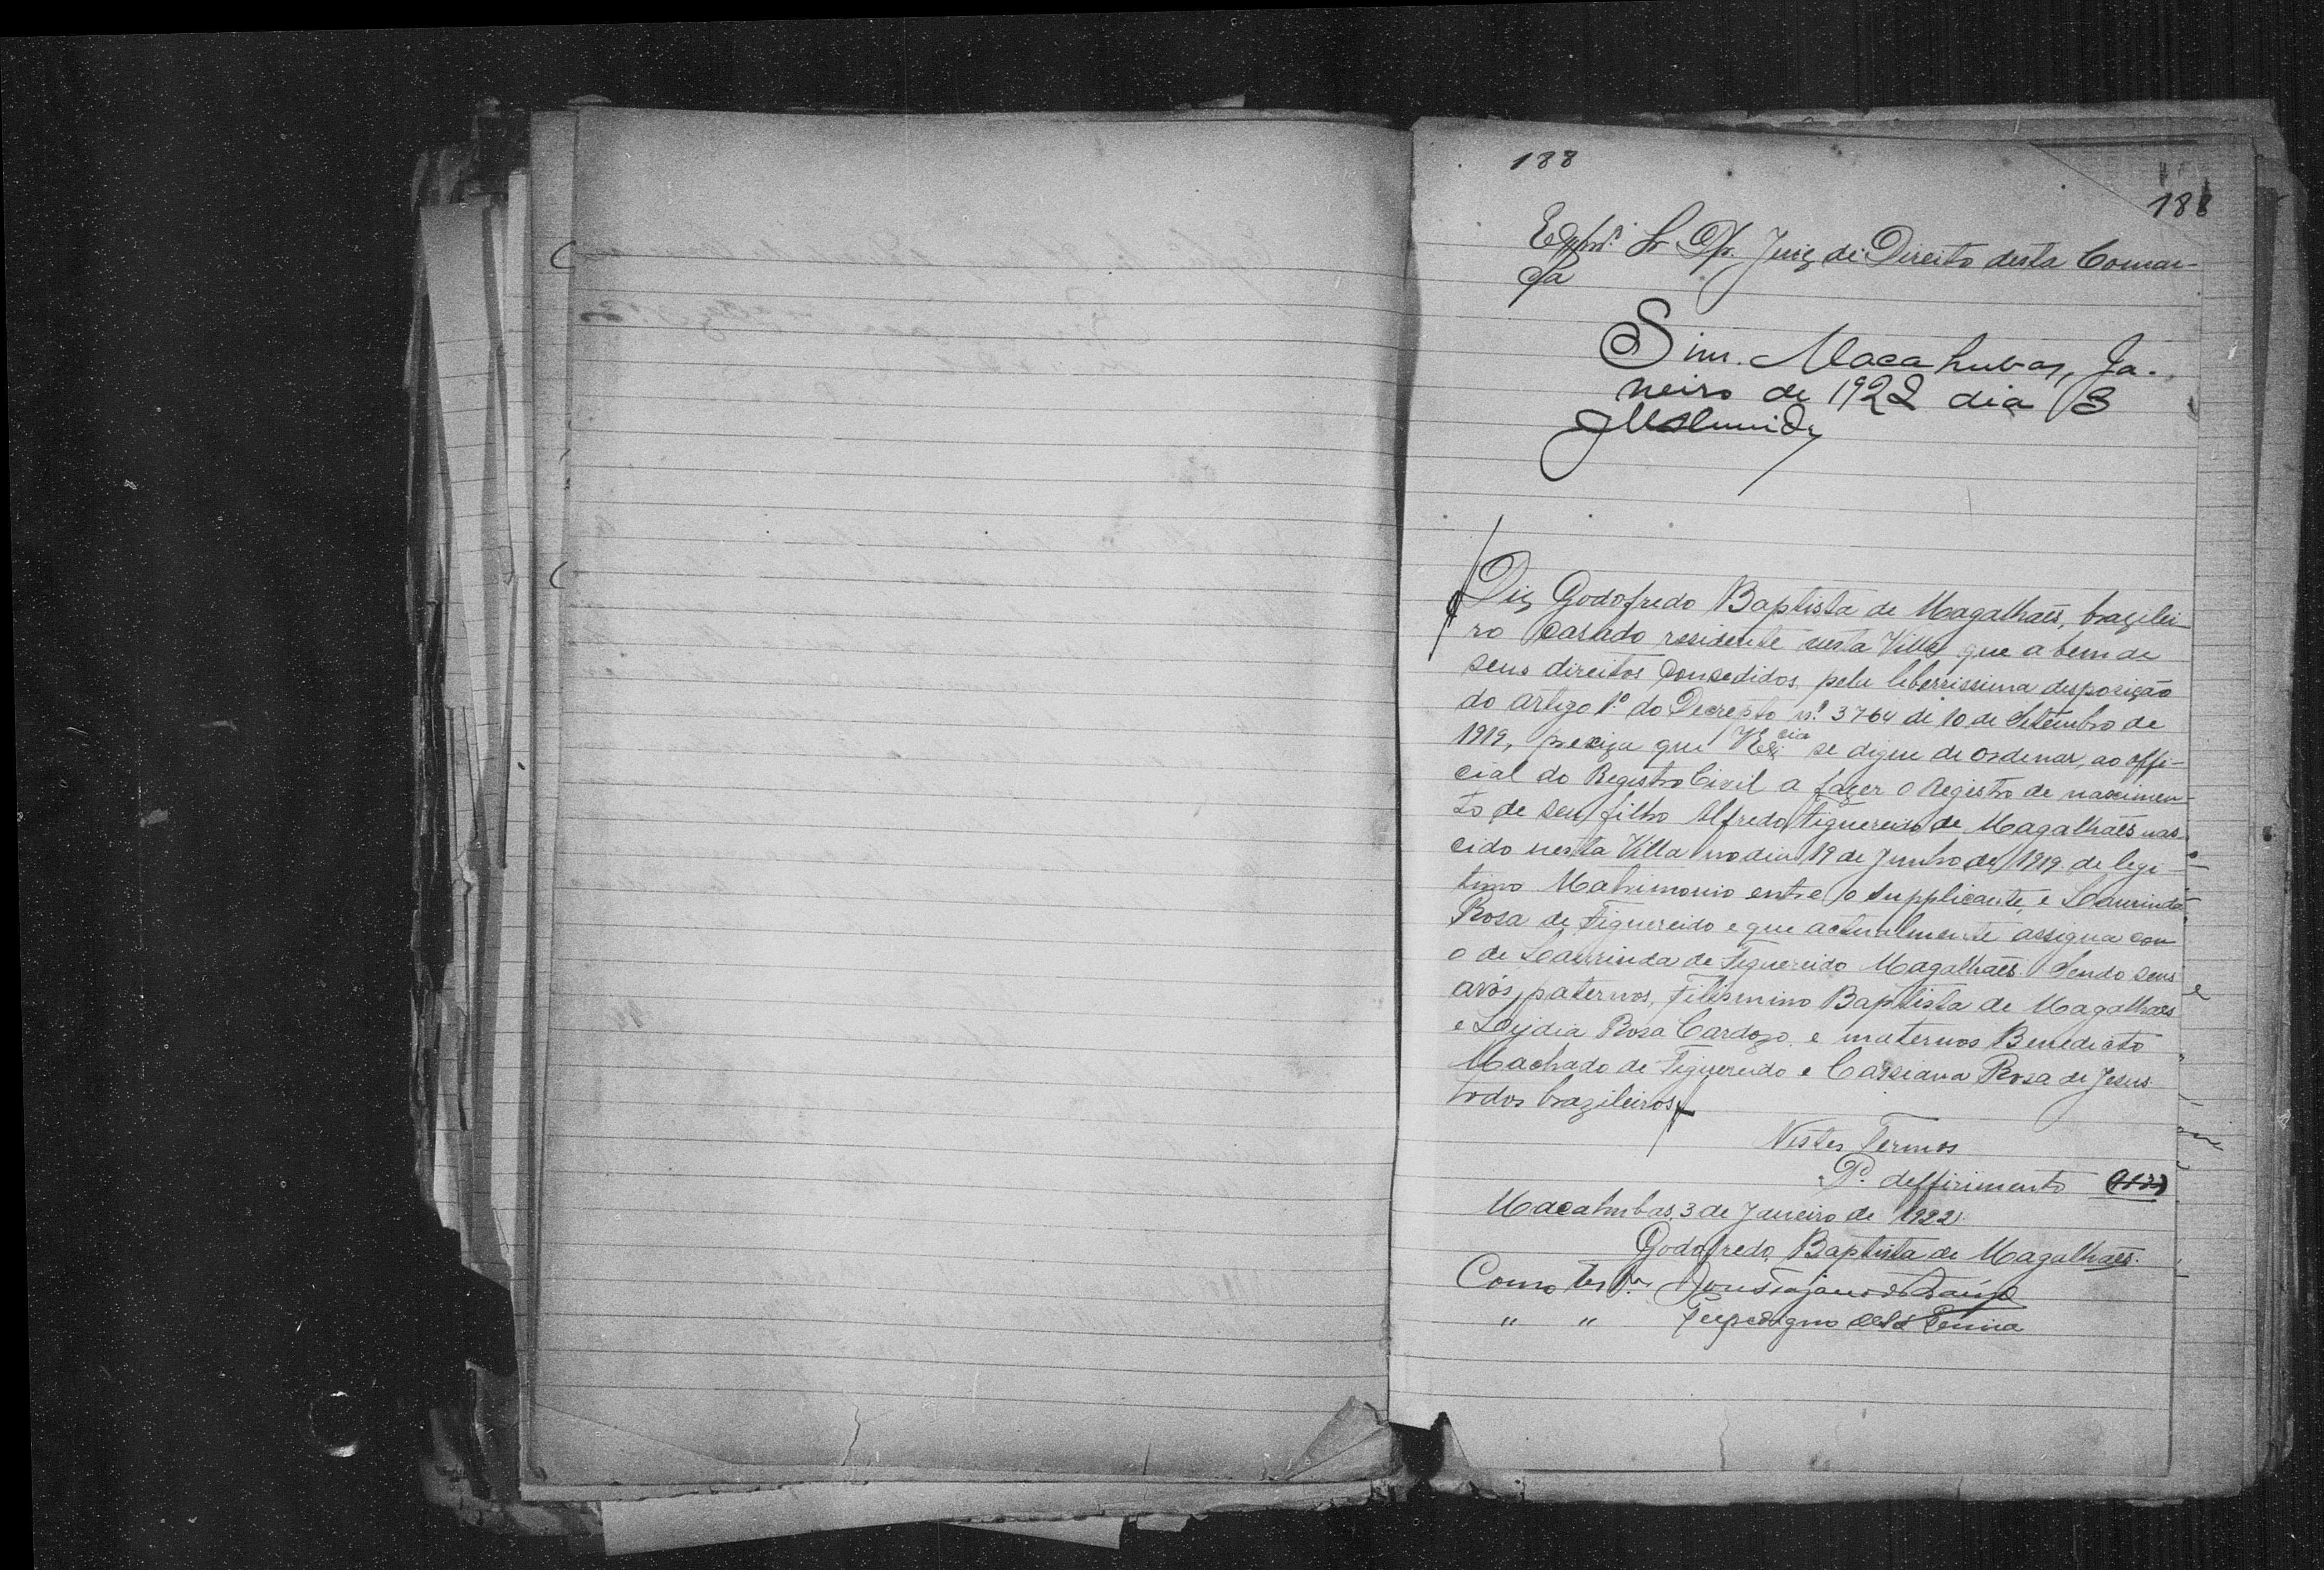 188
188
Exmº Sr Dr. Juiz de Direito desta Comar-
ca
Sim. Macahubas, Ja-
neiro de 1922 dia 3
Diz Godofredo Baptista de Magalhaẽs, brazilei-
ro casado residente nesta Villa que a bem de
seus direitos consedidos, pela liberrissima disposição
do artigo 1º do Decrepto nº 3764 de 10 de Setembro de
1919, preciza que VExcia se digne de ordenar, ao offi-
cial do Registro Civil a fazer o registro de nascimen-
to de seu filho Alfredo Figuereido de Magalhaẽs nas-
cido nesta Villa no dia 19 de Junho de 1919 de legi-
timo Matrimonio entre o supplicante, e Laurinda
Rosa de Figuereido e que actualmente assigna com
o de Laurinda de Figuereido Magalhaẽs. Sendo seus
avós, paternos, Filismino Baptista de Magalhaẽs
e Lydia Rosa Cardozo, e maternos Benedicto
Machado de Figuereido e Cassiana Rosa de Jesus
todos brazileiros
Nestes Termos
P. deffirimento
Macahubas, 3 de Janeiro de 1922.
Godofredo Baptista de Magalhaẽs.
Como
" "